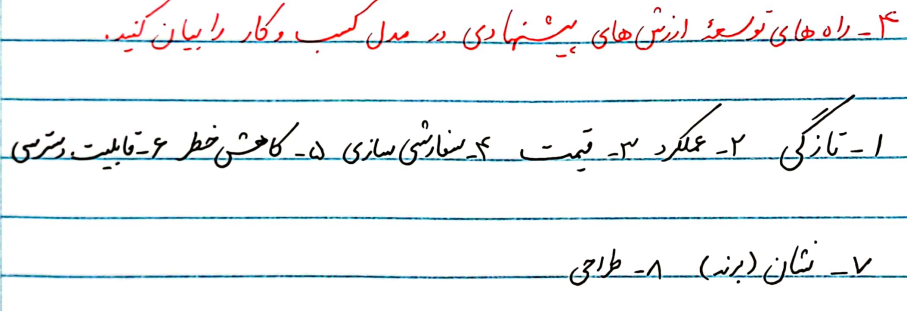 ۴- راه های توسعهٔ ارزش های پیشنهادی در مدل کسب و کار را بیان کنید.
۱- تازگی ۲- عملکرد ۳- قیمت ۴- سفارشی سازی ۵- کاهش خطر ۶- قابلیت دسترسی
۷- نشان (برند) ۸- طراحی